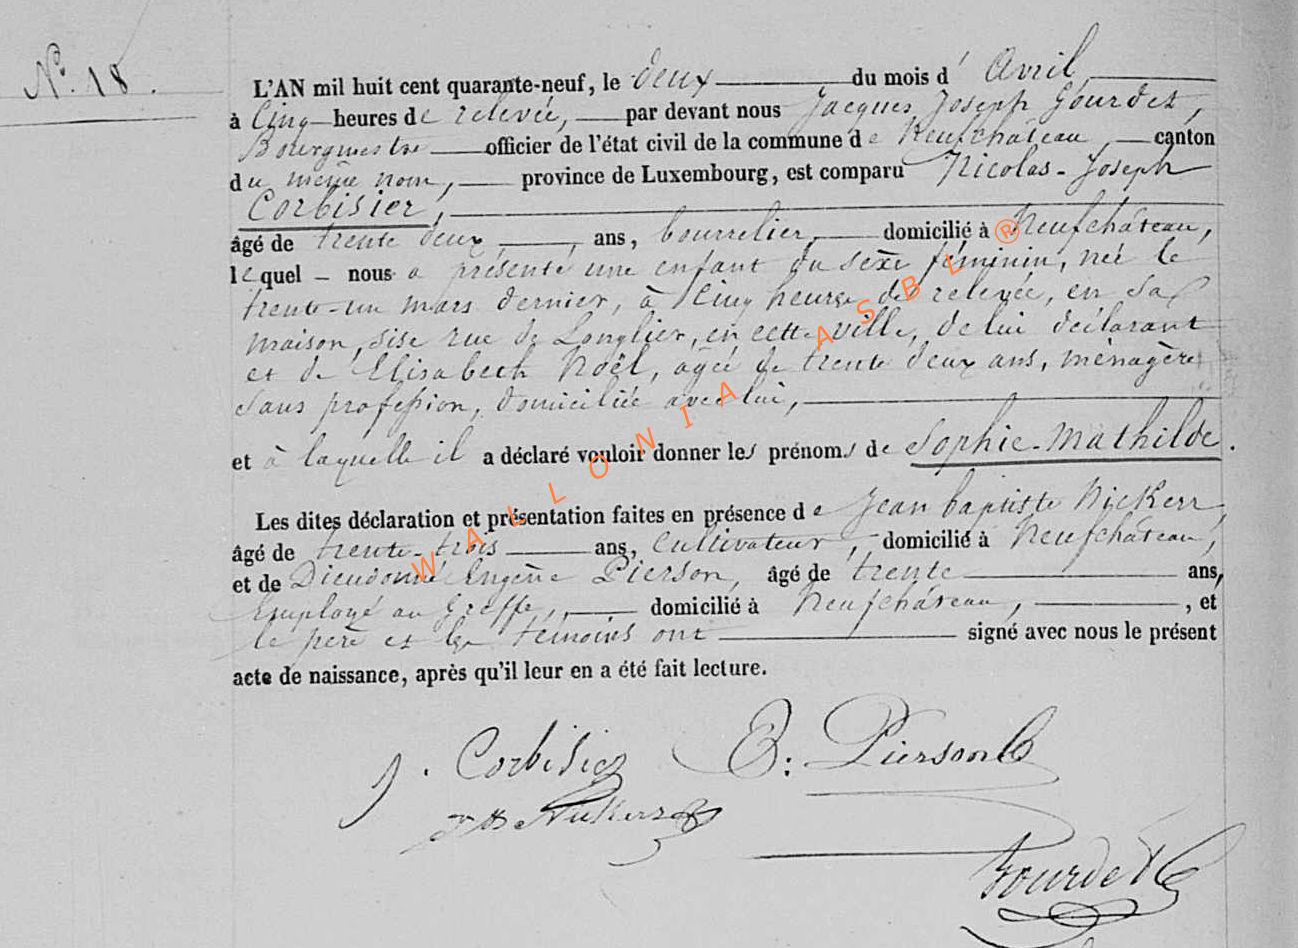 N.º 18.
L'AN mil huit cent quarante-neuf, le deux du mois d' Avril,
à Cinq heures de relevée, par devant nous Jacques Joseph Gourdet,
Bourgmestre officier de l'état civil de la commune de Neufchâteau, canton
du même nom, province de Luxembourg, est comparu Nicolas-Joseph
Corbisier,
âgé de trente deux, ans, bourrelier, domicilié à Neufchâteau,
lequel nous a présenté une enfant du sexe féminin, née le
trente-un mars dernier, à Cinq heures de relevée, en sa
maison, sise rue de Longlier, en cette ville, de lui déclarant
et de Elisabeth Noël, agée de trente deux ans, ménagère
sans profession, domiciliée avec lui,
et à laquelle il a déclaré vouloir donner les prénoms de Sophie-Mathilde.
Les dites déclaration et présentation faites en présence de Jean baptiste Nickers,
âgé de trente-trois ans, Cultivateur, domicilié à Neufchâteau,
et de Dieudonné Eugène Pierson, âgé de trente ans,
Employé au Greffe, domicilié à Neufchâteau, et
le père et les témoins ont signé avec nous le présent
acte de naissance, après qu'il leur en a été fait lecture.
J. Corbisier E: Pierson
JB Nickers
Gourdet
WALLONIA ASBL ®